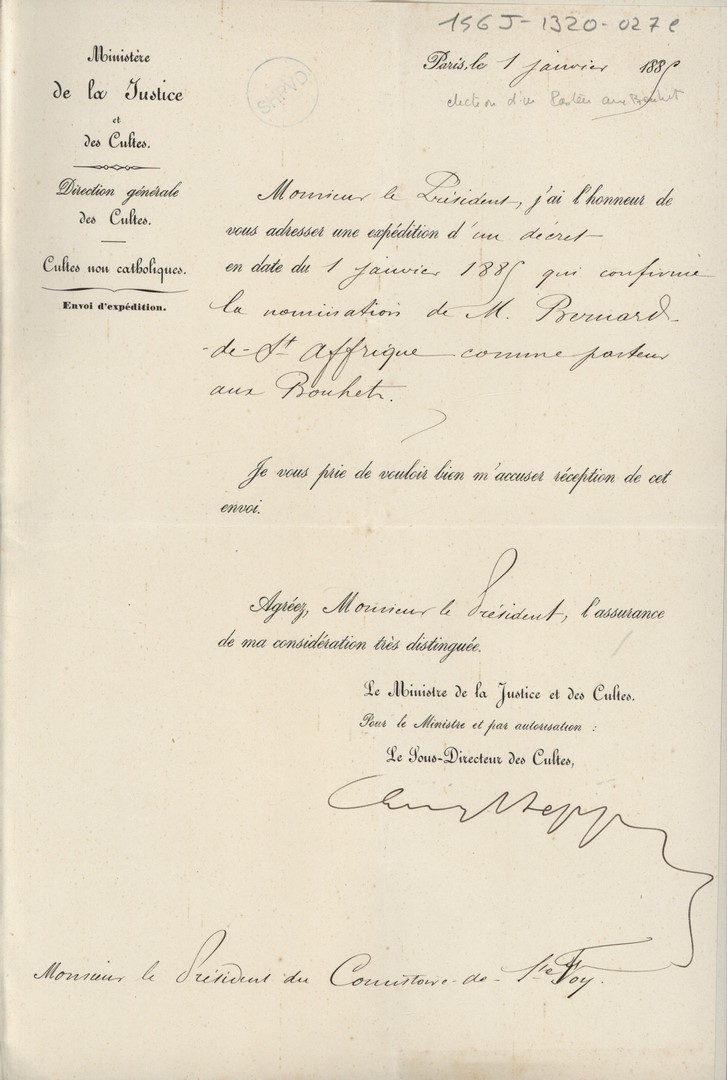 156J-1320-027e
Ministère
de la Justice
et
des Cultes.
Direction générale
des Cultes.
Cultes non catholiques.
Envoi d'expédition.
CAHS
Paris, le 1 janvier 1885
election d'un Pasteur aux Bouhets
Monsieur le Président, j'ai l'honneur de
vous adresser une expédition d'un décret
en date du 1 janvier 1885 qui confirme
la nomination de M. Bernard
de St Affrique comme pasteur
aux Bouhets.
Je vous prie de vouloir bien m'accuser réception de cet
envoi.
Agréez, Monsieur le Président, l'assurance
de ma considération très distinguée.
Le Ministre de la Justice et des Cultes.
Pour le Ministre et par autorisation :
Le Sous-Directeur des Cultes,
Monsieur le Président du Consistoire de Ste Foy.